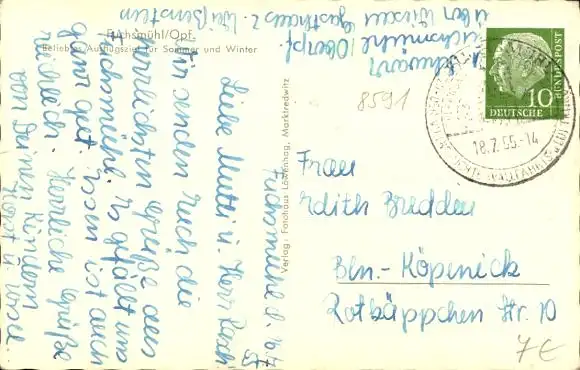 Fuchsmühl/Opf.
Beliebtes Ausflugsziel für Sommer und Winter
Fuchsmühle d.
Liebe Mutti u. Herr
Wir senden Euch die
herzlichsten Grüße aus
Fuchsmühle. Es gefällt uns
ganz gut. Essen ist auch
reichlich. Herzliche Grüße
von Deinen Kindern
Horst u. Ursel
Fuchsmühle/Oberpf
über Wiesau Gasthaus z. Weißenstein
Verlag: Fotohaus Löwenhag, Marktredwitz
8591
DEUTSCHE
BUNDESPOST
10
18.7.55.-14
Frau
Edith Bredden
Bln.- Köpenick
Rotkäppchen Str. 10
7€